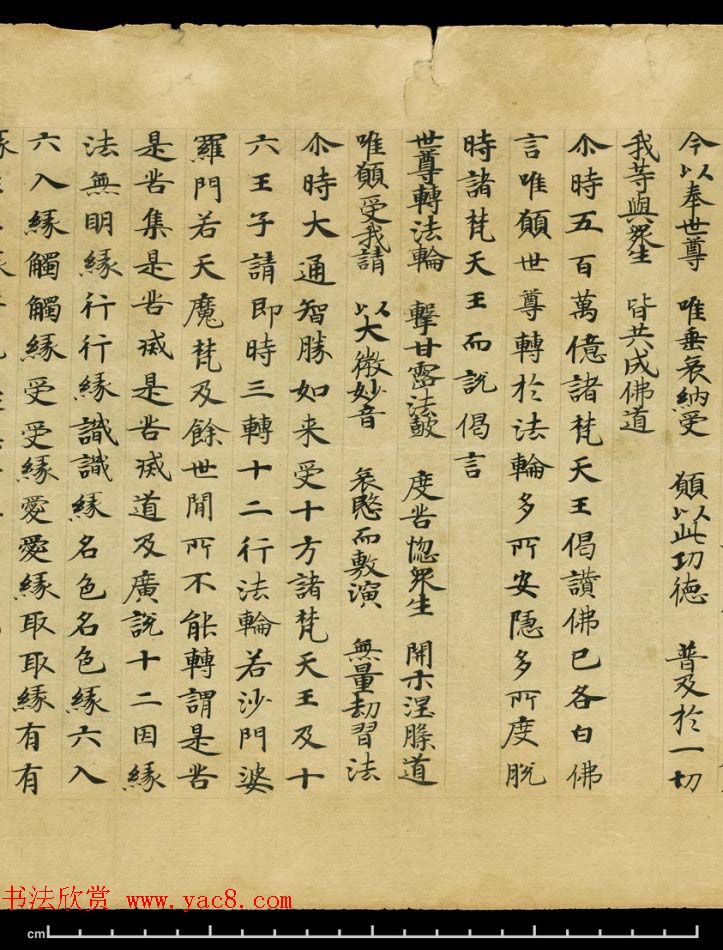 今以奉世尊 唯垂哀納受 願以此功德 普及於一切
我等與衆生 皆共成佛道
尒時五百萬億諸梵天王偈讚佛已各白佛
言唯願世尊轉於法輪多所安隱多所度脫
時諸梵天王而說偈言
世尊轉法輪 擊甘露法鼓 度苦惱衆生 開示涅槃道
唯願受我請 以大微妙音 哀愍而敷演 無量劫習法
尒時大通智勝如来受十方諸梵天王及十
六王子請即時三轉十二行法輪若沙門婆
羅門若天魔梵及餘世間所不能轉謂是苦
是苦集是苦滅是苦滅道及廣說十二因緣
法無明緣行行緣識識緣名色名色緣六入
六入緣觸觸緣受受緣愛愛緣取取緣有有
书法欣赏 www.yac8.com
cm